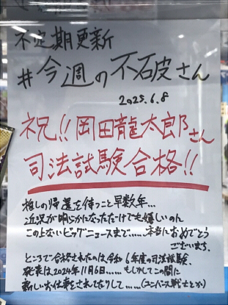 不定期更新
#今週の不破さん
2025.6.8
祝!!岡田龍太郎さん
司法試験合格!!
推しの帰還を待つこと早数年…
近況が明らかになっただけでも嬉しいのん
この上ないビッグニュースまで……本当におめでとう
ございます。
ところで合格されたのは令和6年度の司法試験、
発表は2024年11月6日……もしかしてこの間に
新しいお仕事をされたなりして……(ユニバース戦士とか)